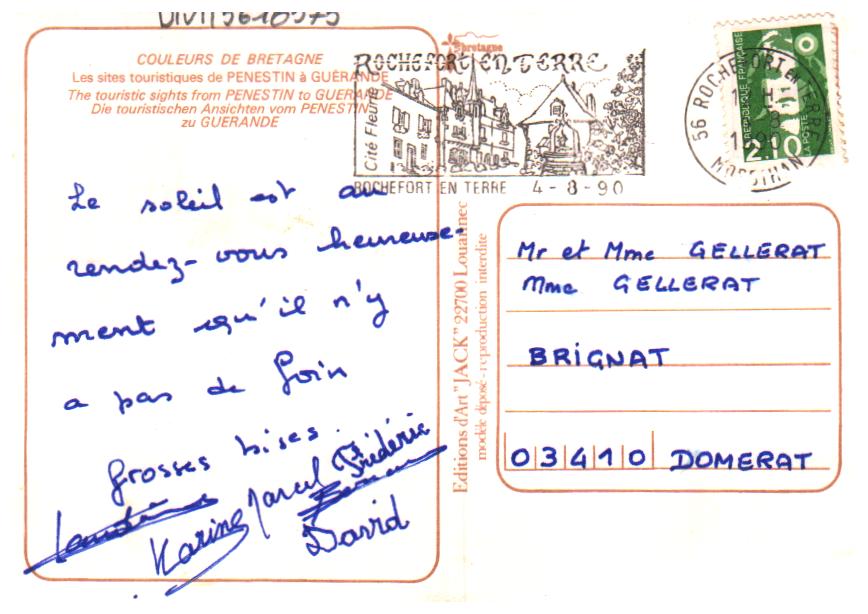 COULEURS DE BRETAGNE
Les sites touristiques de PENESTIN à GUÉRANDE
The touristic sights from PENESTIN to GUERANDE
Die touristischen Ansichten vom PENESTIN
zu GUERANDE
Le soleil est au
rendez-vous heureuse-
ment qu'il n'y
a pas de foin
Grosses bises.
Karine Marcel Frédéric
David
bretagne
ROCHEFORT EN TERRE
Cité Fleurie
ROCHEFORT EN TERRE 4-8-90
56 ROCHEFORT EN TERRE
MORBIHAN
REPUBLIQUE FRANÇAISE
2,10
LA POSTE
Editions d'Art "JACK" 22700 Louannec
modèle déposé - reproduction interdite
Mr et Mme GELLERAT
Mme GELLERAT
BRIGNAT
03410 DOMERAT